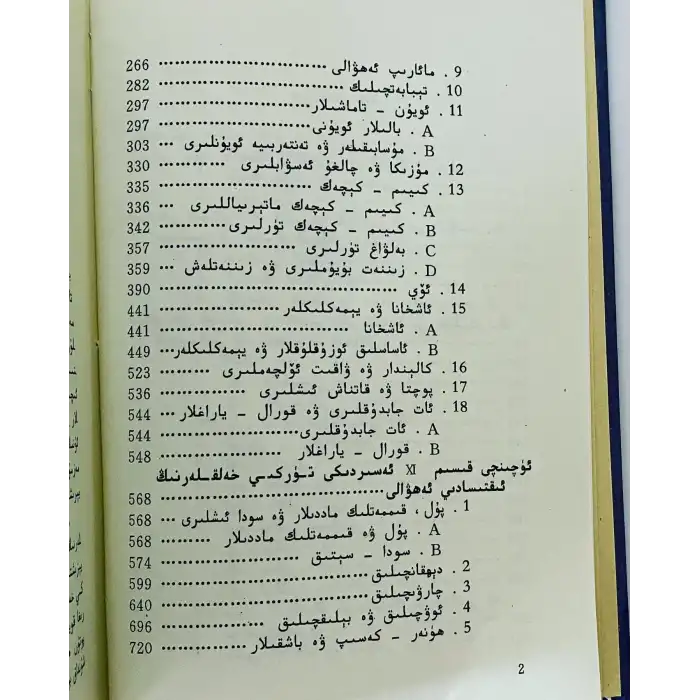 9 . مائارىپ ئەھۋالى ............................ 266
10 . تېبابەتچىلىك ............................ 282
11 . ئويۇن – تاماشىلار ............................ 297
A . باللىلار ئويۇنى ............................ 297
B . مۇسابىقىلەر ۋە تەنتەربىيە ئويۇنلىرى ... 303
12 . مۇزىكا ۋە چالغۇ ئەسۋابلىرى ............ 330
13 . كىيىم – كېچەك ............................ 335
A . كىيىم – كېچەك ماتېرىياللىرى ... 336
B . كىيىم – كېچەك تۈرلىرى ............ 342
C . بەلۋاغ تۈرلىرى ........................ 357
D . زىننەت بۇيۇملىرى ۋە زىننەتلەش ... 359
14 . ئۆي ............................ 390
15 . ئاشخانا ۋە يېمەكلىكلەر .................. 441
A . ئاشخانا ............................ 441
B . ئاساسلىق ئوزۇقلۇقلار ۋە يېمەكلىكلەر... 449
16 . كالېندار ۋە ۋاقىت ئۆلچەملىرى ......... 523
17 . پوچتا ۋە قاتناش ئىشلىرى ............ 536
18 . ئات جابدۇقلىرى ۋە قورال – ياراغلار ... 544
A . ئات جابدۇقلىرى........................ 544
B . قورال – ياراغلار ..................... 548
ئۈچىنچى قىسىم XI ئەسىردىكى تۈركىي خەلقلەرنىڭ
ئىقتىسادىي ئەھۋالى............................ 568
1 . پۇل، قىممەتلىك ماددىلار ۋە سودا ئىشلىرى ... 568
A . پۇل ۋە قىممەتلىك ماددىلار ......... 568
B . سودا – سېتىق ..................... 574
2 . دېھقانچىلىق............................ 599
3 . چارۋىچىلىق............................ 640
4 . ئوۋچىلىق ۋە بېلىقچىلىق .................. 696
5 . ھۈنەر – كەسىپ ۋە باشقىلار ............... 720
2